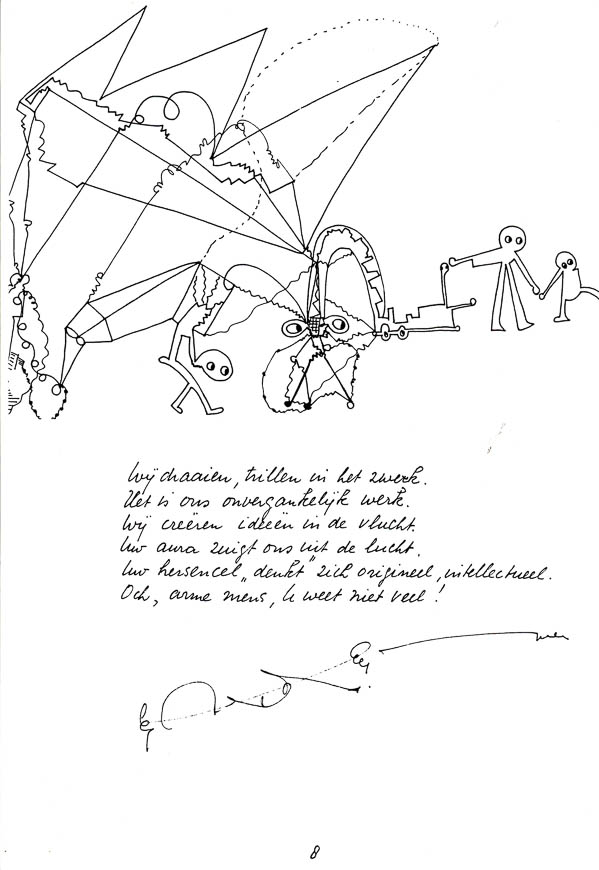 Wij draaien, trillen in het zwerk.
Het is ons onvergankelijk werk.
Wij creëren ideeën in de vlucht.
Uw aura zuigt ons uit de lucht.
Uw hersencel „denkt" zich origineel, intellectueel.
Och, arme mens, U weet niet veel!
8